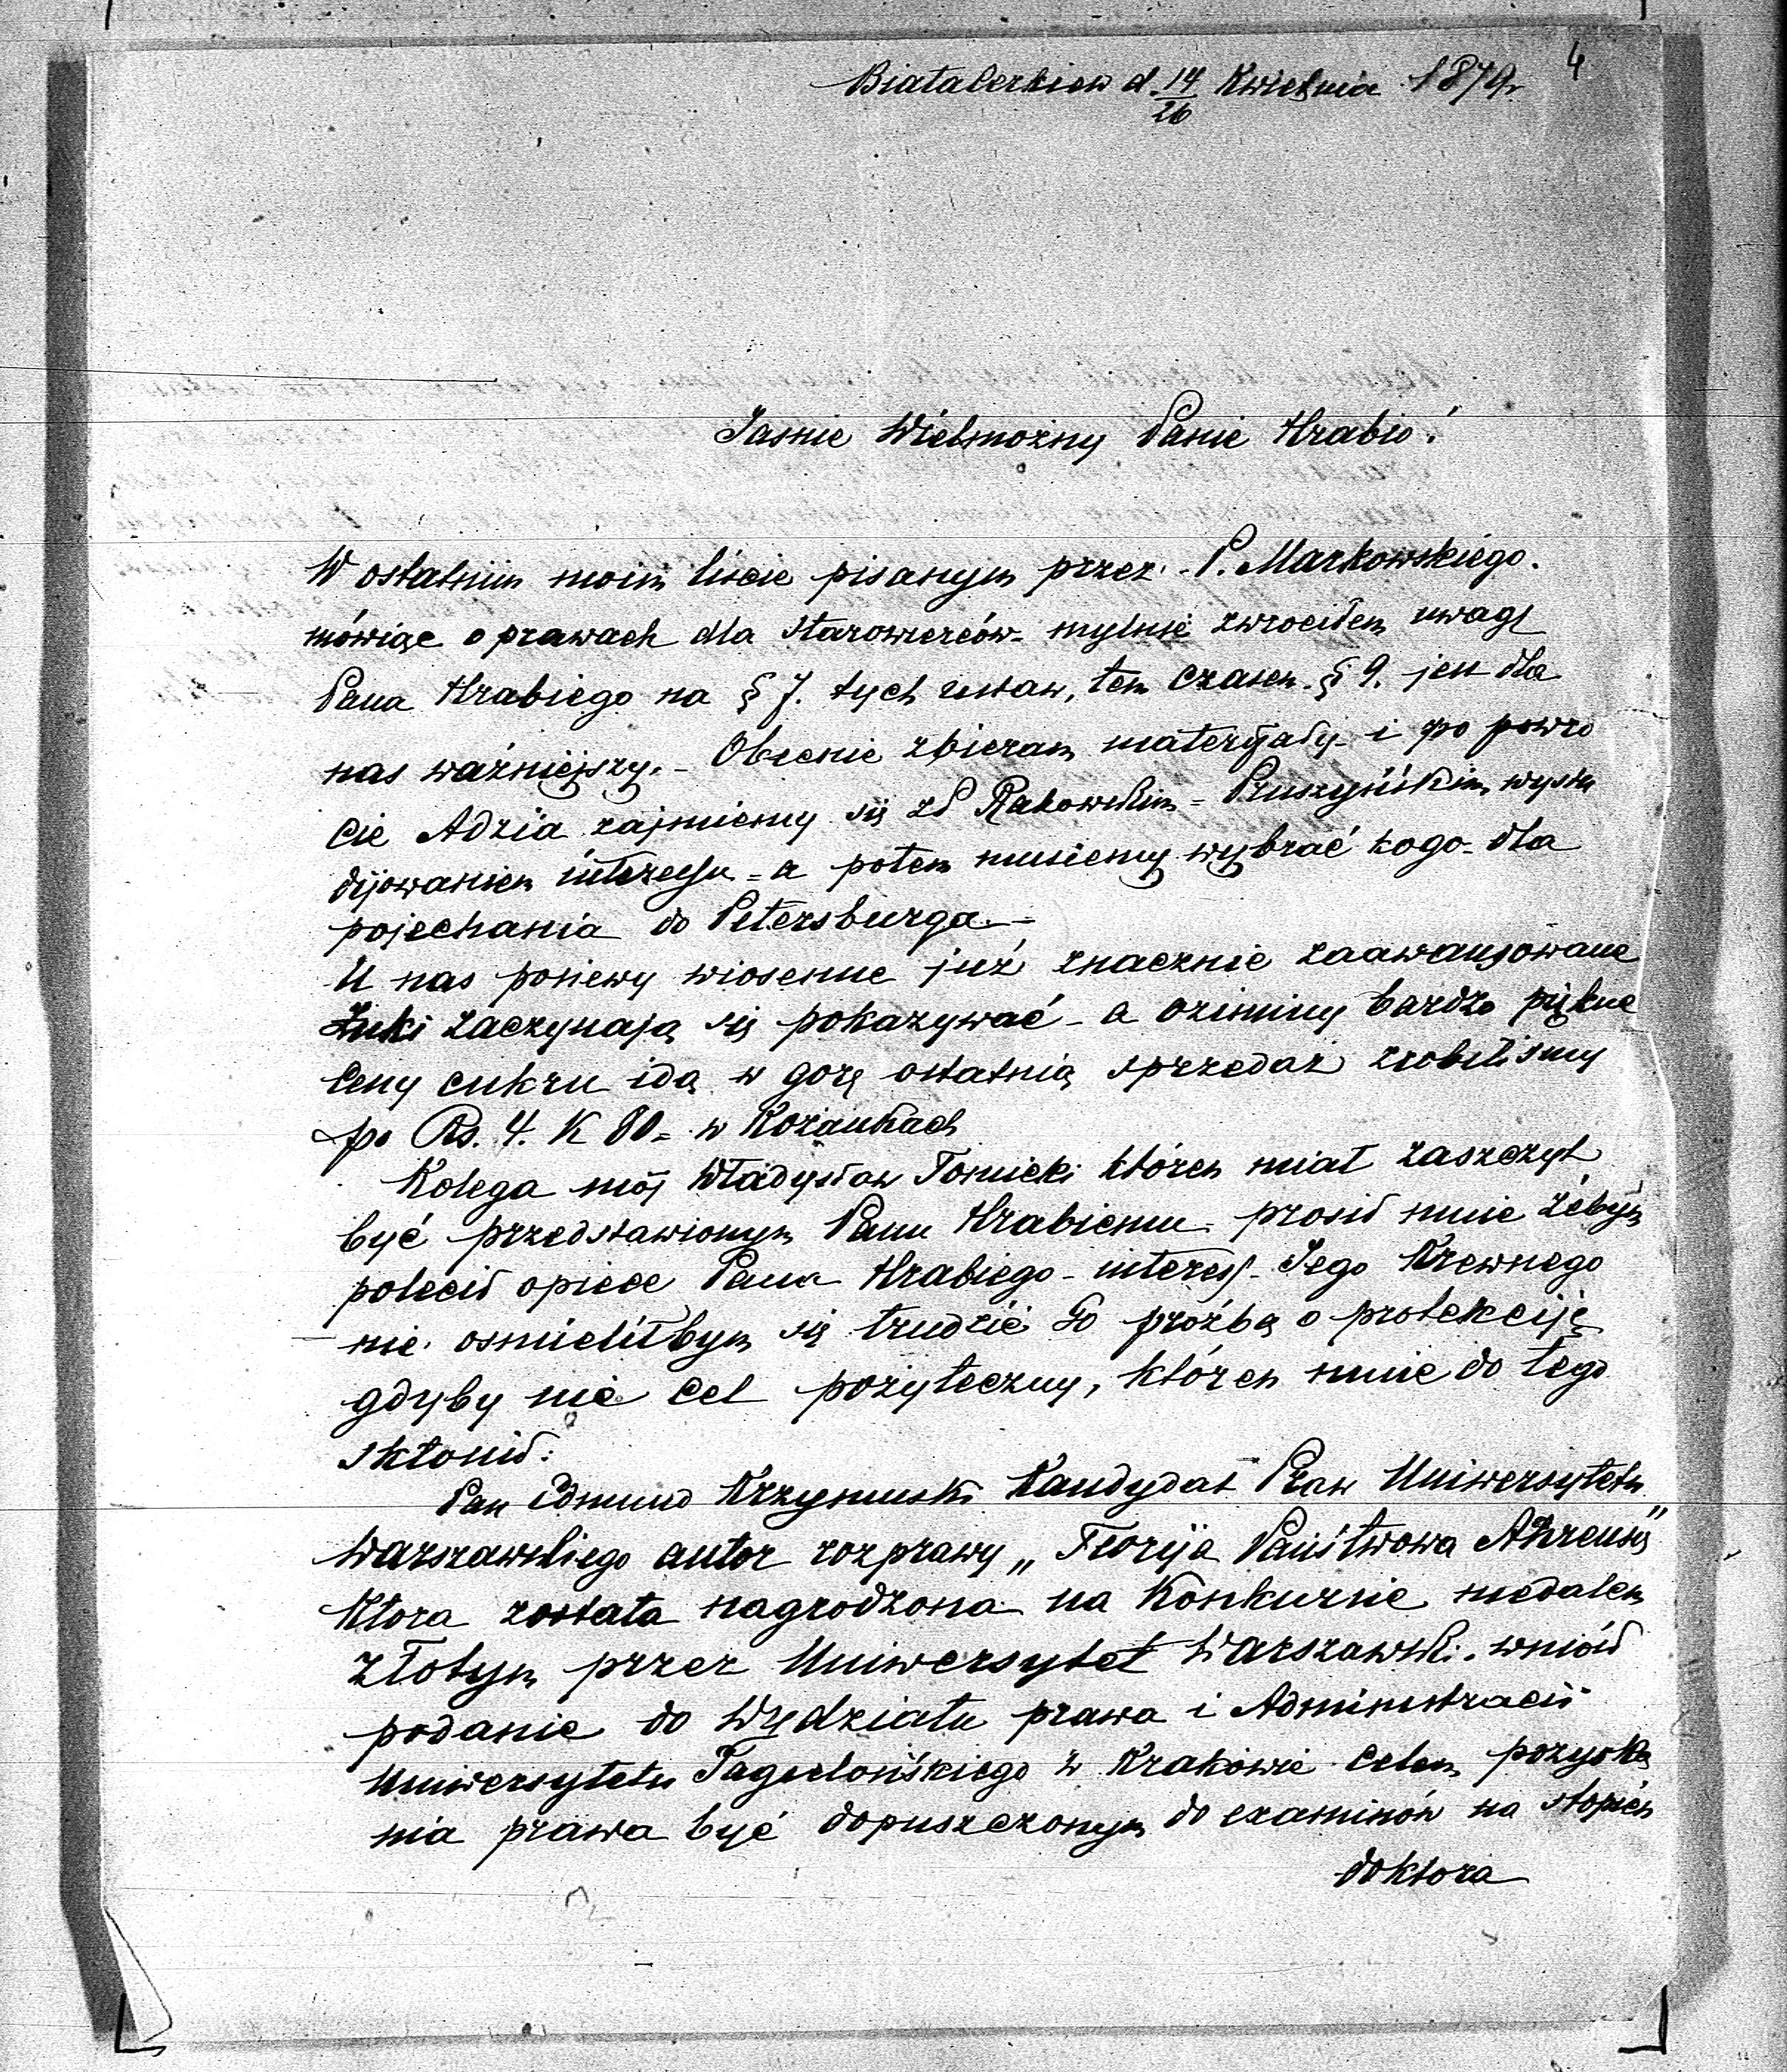 4
Białacerkiew d. 14/26 Kwietnia 1879r
Jasnie Wielmożny Panie Hrabio!
W ostatnim moim liscie pisanym przez P. Markowskiego.
mówiąc o prawach dla starowierców- mylnie zwrociłem uwagę
Pana Hrabiego na § 7. tych ustaw, tem czasem § 9. jest dla
nas ważniejszy. - Obecnie zbieram materyały- i po powro
cie Adzia zajmiemy się z P Rakowskim = Pruszyńskim wystu
dijowaniem interesu = a potem musiemy wybrać kogo- dla
pojechania do Petersburga. -
U nas posiewy wiosenne już znacznie zaawansowane
Żuki zaczynają się pokazywać - a oziminy bardzo piękne
Ceny cukru idą w gorę ostatnią sprzedaż zrobiliśmy
po Rs. 4. K 80 = w Kożankach
Kolega mój Władysław Tomicki któren miał zaszczyt
być przedstawionym Panu Hrabiemu - prosił mnie żebym
polecił opiece Pana Hrabiego - interess - Jego Krewnego
nie osmieliłbym się trudzić Go próźbą o protekciję
gdyby nie cel pożyteczny, któren mnie do tego
skłonił:
Pan Edmund Krzymuski Kandydat Praw Uniwersytetu
Warszawskiego autor rozprawy „Teorija Państwowa Ahrensa"
Ktora została nagrodzona na Konkursie medalem
złotym przez Uniwersytet Warszawski. wniósł
podanie do Wydziału prawa i Administracii
Uniwersytetu Jagiellońskiego w Krakowie celem pozyska
nia prawa być dopuszczonym do examinów na stopień
doktora